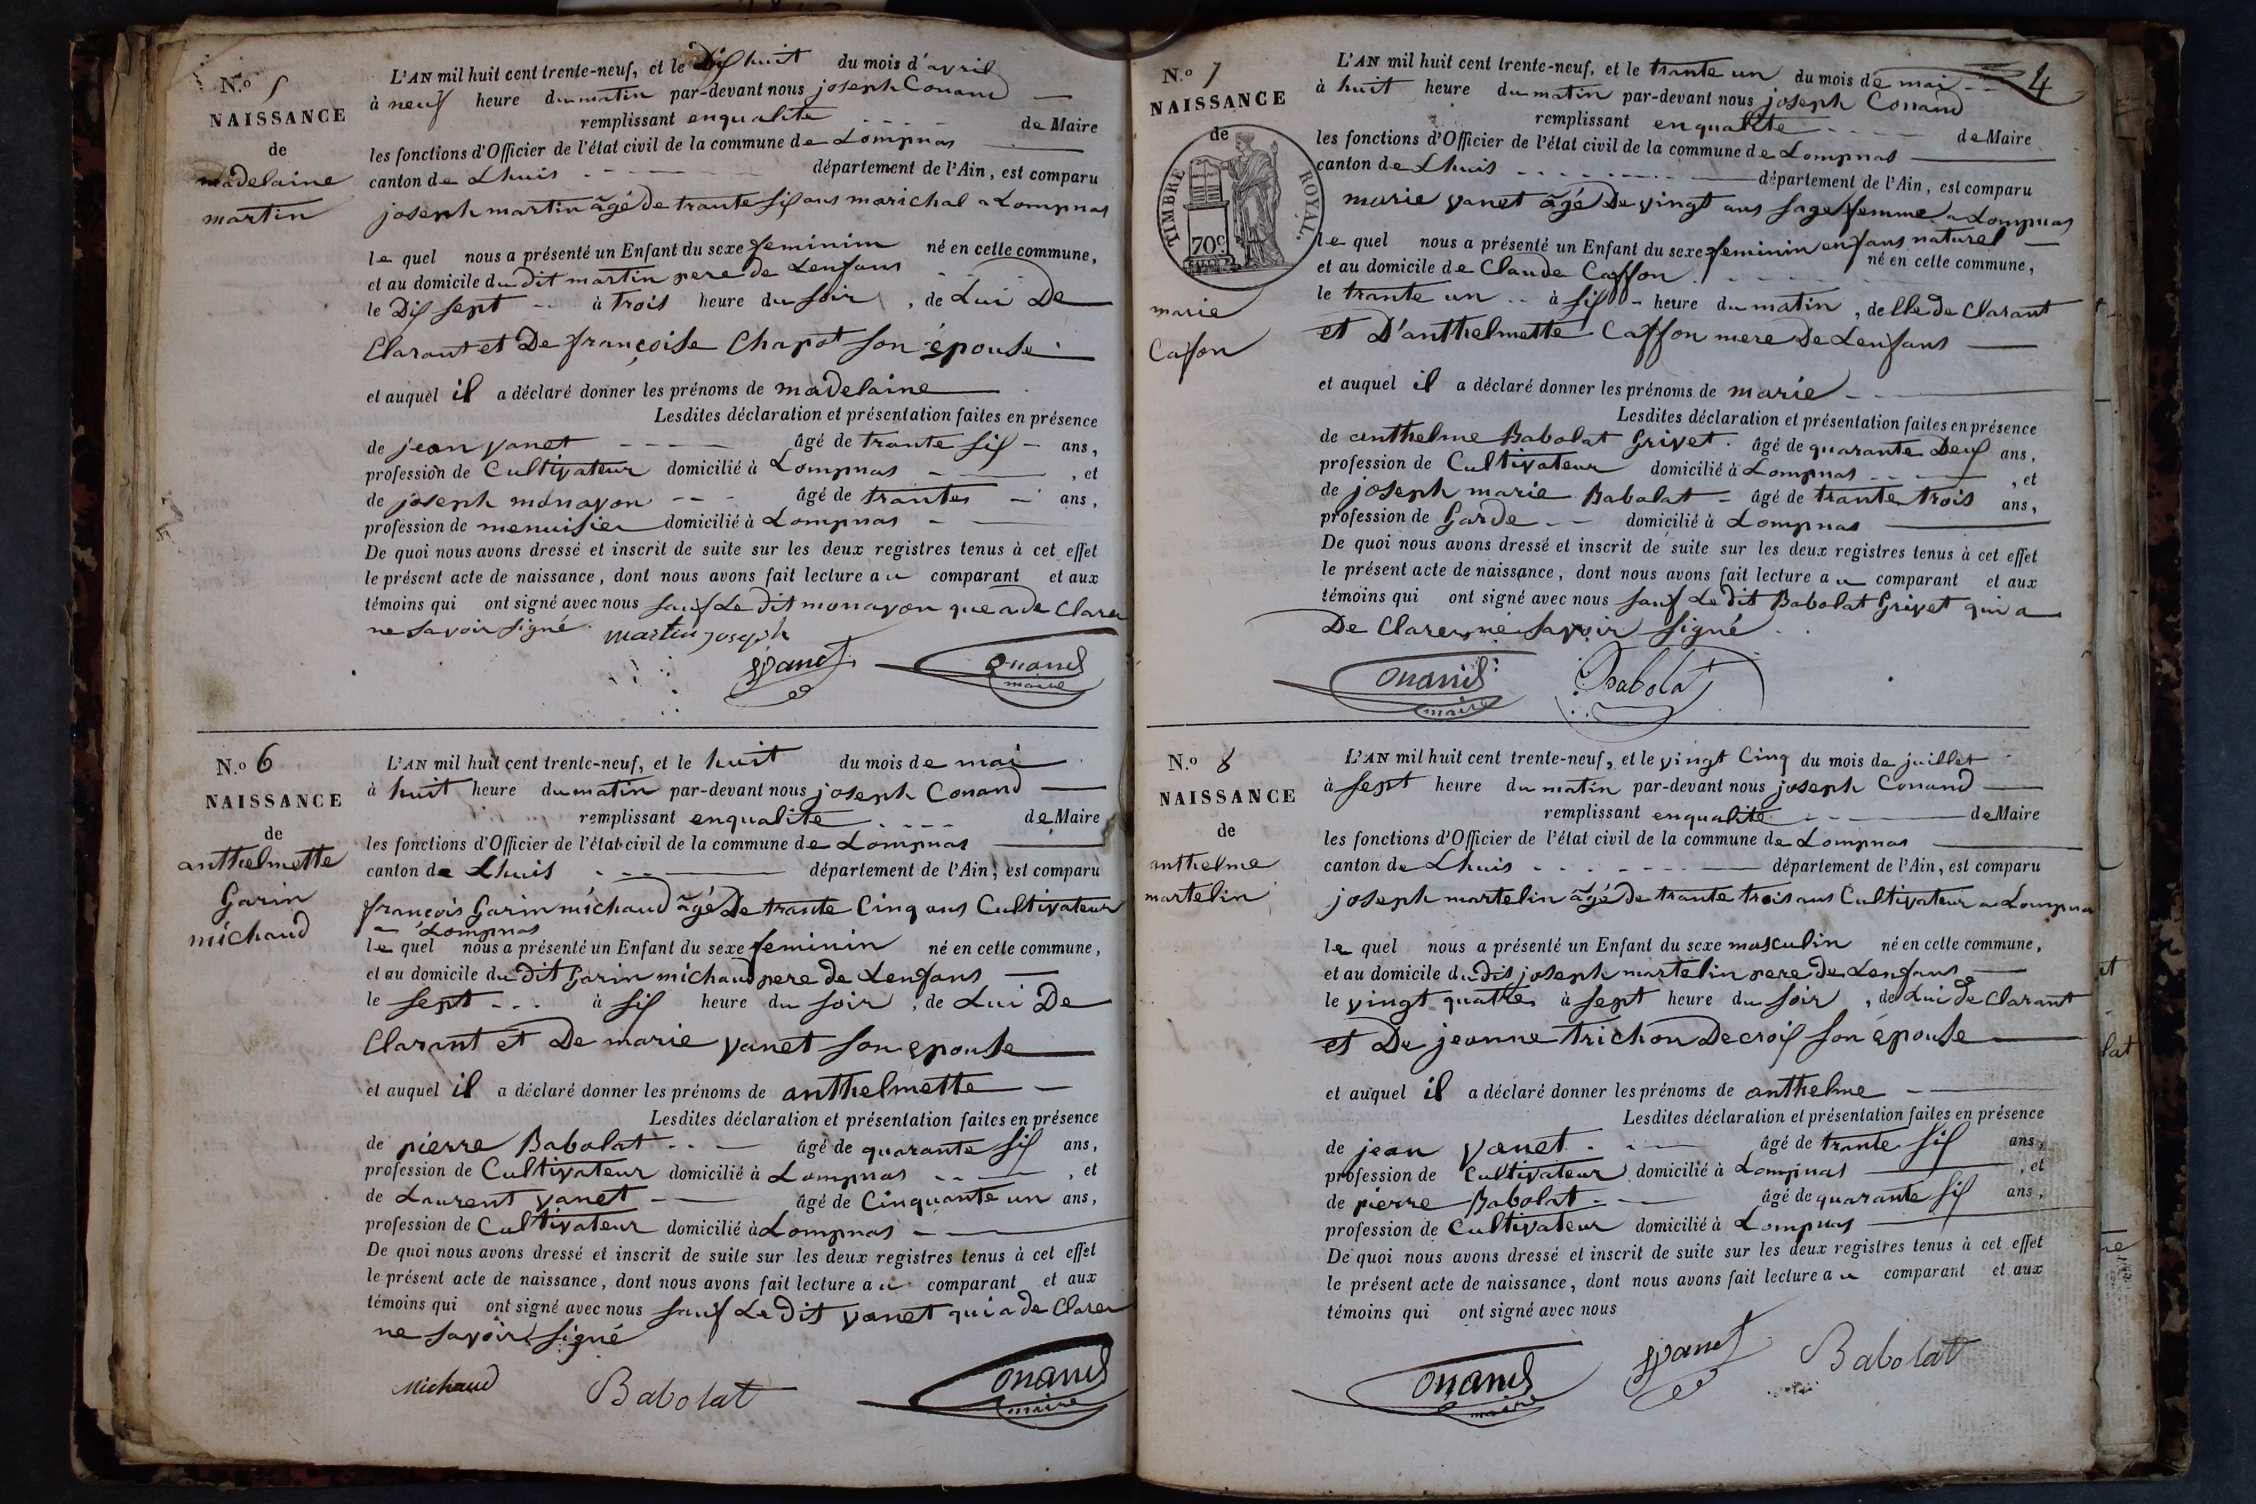 N.o 5
NAISSANCE
de
madelaine
martin
L'AN mil huit cent trente-neuf, et le Dix huit du mois d'avril
à neuf heure du matin par-devant nous joseph Conand
remplissant enqualité de Maire
les fonctions d'Officier de l'état civil de la commune de Lompnas
canton de Lhuis département de l'Ain, est comparu
joseph martin âgé de trante six ans marichal a Lompnas
le quel nous a présenté un Enfant du sexe feminim né en cette commune,
et au domicile du dit martin pere de Lenfans
le Dix sept à trois heure du soir, de Lui De
Clarant et De françoise Chapot son épouse
et auquel il a déclaré donner les prénoms de madelaine
Lesdites déclaration et présentation faites en présence
de jean vanet âgé de trante six ans,
profession de Cultivateur domicilié à Lompnas, et
de joseph monavon âgé de trantes ans,
profession de menuisier domicilié à Lompnas
De quoi nous avons dressé et inscrit de suite sur les deux registres tenus à cet effet
le présent acte de naissance, dont nous avons fait lecture au comparant et aux
témoins qui ont signé avec nous sauf Le dit monavon que a de Clarer
ne savoir signé martin joseph
jvanet Onand
maire
N.o 6
NAISSANCE
de
anthelmette
Garin
michaud
L'AN mil huit cent trente-neuf, et le huit du mois de mai
à huit heure du matin par-devant nous joseph Conand
remplissant enqualité de Maire
les fonctions d'Officier de l'état civil de la commune de Lompnas
canton de Lhuis département de l'Ain, est comparu
françois Garin michaud âgé De trante Cinq ans Cultivateur
a Lompnas
le quel nous a présenté un Enfant du sexe feminin né en cette commune,
et au domicile du dit Garin michaud pere de Lenfans
le sept à six heure du soir, de Lui De
Clarant et De marie vanet son epouse
et auquel il a déclaré donner les prénoms de anthelmette
Lesdites déclaration et présentation faites en présence
de pierre Babolat âgé de quarante six ans,
profession de Cultivateur domicilié à Lompnas, et
de Laurent vanet âgé de Cinquante un ans,
profession de Cultivateur domicilié à Lompnas
De quoi nous avons dressé et inscrit de suite sur les deux registres tenus à cet effet
le présent acte de naissance, dont nous avons fait lecture au comparant et aux
témoins qui ont signé avec nous sauf Le dit vanet qui a de Clarer
ne savoir signé
Michaud Babolat Onand
maire
4
N.o 7
NAISSANCE
de
TIMBRE ROYAL.
70c
marie
Caffon
L'AN mil huit cent trente-neuf, et le trante un du mois de mai
à huit heure du matin par-devant nous joseph Conand
remplissant enqualité de Maire
les fonctions d'Officier de l'état civil de la commune de Lompnas
canton de Lhuis département de l'Ain, est comparu
marie vanet âgé De vingt ans sage femme a Lompnas
le quel nous a présenté un Enfant du sexe feminin enfans naturel né en cette commune,
et au domicile de Claude Caffon
le trante un à six heure du matin, delle de Clarant
et D'anthelmette Caffon mere De Lenfans
et auquel il a déclaré donner les prénoms de marie
Lesdites déclaration et présentation faites en présence
de anthelme Babolat Grivet âgé de quarante Deux ans,
profession de Cultivateur domicilié à Lompnas, et
de joseph marie Babolat âgé de trante trois ans,
profession de Garde domicilié à Lompnas
De quoi nous avons dressé et inscrit de suite sur les deux registres tenus à cet effet
le présent acte de naissance, dont nous avons fait lecture au comparant et aux
témoins qui ont signé avec nous sauf Le dit Babolat Grivet qui a
De Clarer ne savoir signé
Onand Babolat
maire
N.o 8
NAISSANCE
de
anthelme
martelin
L'AN mil huit cent trente-neuf, et le vingt Cinq du mois de juillet
à sept heure du matin par-devant nous joseph Conand
remplissant enqualité de Maire
les fonctions d'Officier de l'état civil de la commune de Lompnas
canton de Lhuis département de l'Ain, est comparu
joseph martelin âgé de trante trois ans Cultivateur a Lompnas
le quel nous a présenté un Enfant du sexe masculin né en cette commune,
et au domicile du dit joseph martelin pere de Lenfans
le vingt quatre à sept heure du soir, de Lui de Clarant
et De jeanne trichon Decroix son épouse
et auquel il a déclaré donner les prénoms de anthelme
Lesdites déclaration et présentation faites en présence
de jean vanet âgé de trante six ans,
profession de Cultivateur domicilié à Lompnas, et
de pierre Babolat âgé de quarante six ans,
profession de Cultivateur domicilié à Lompnas
De quoi nous avons dressé et inscrit de suite sur les deux registres tenus à cet effet
le présent acte de naissance, dont nous avons fait lecture au comparant et aux
témoins qui ont signé avec nous
Onand jvanet Babolat
maire